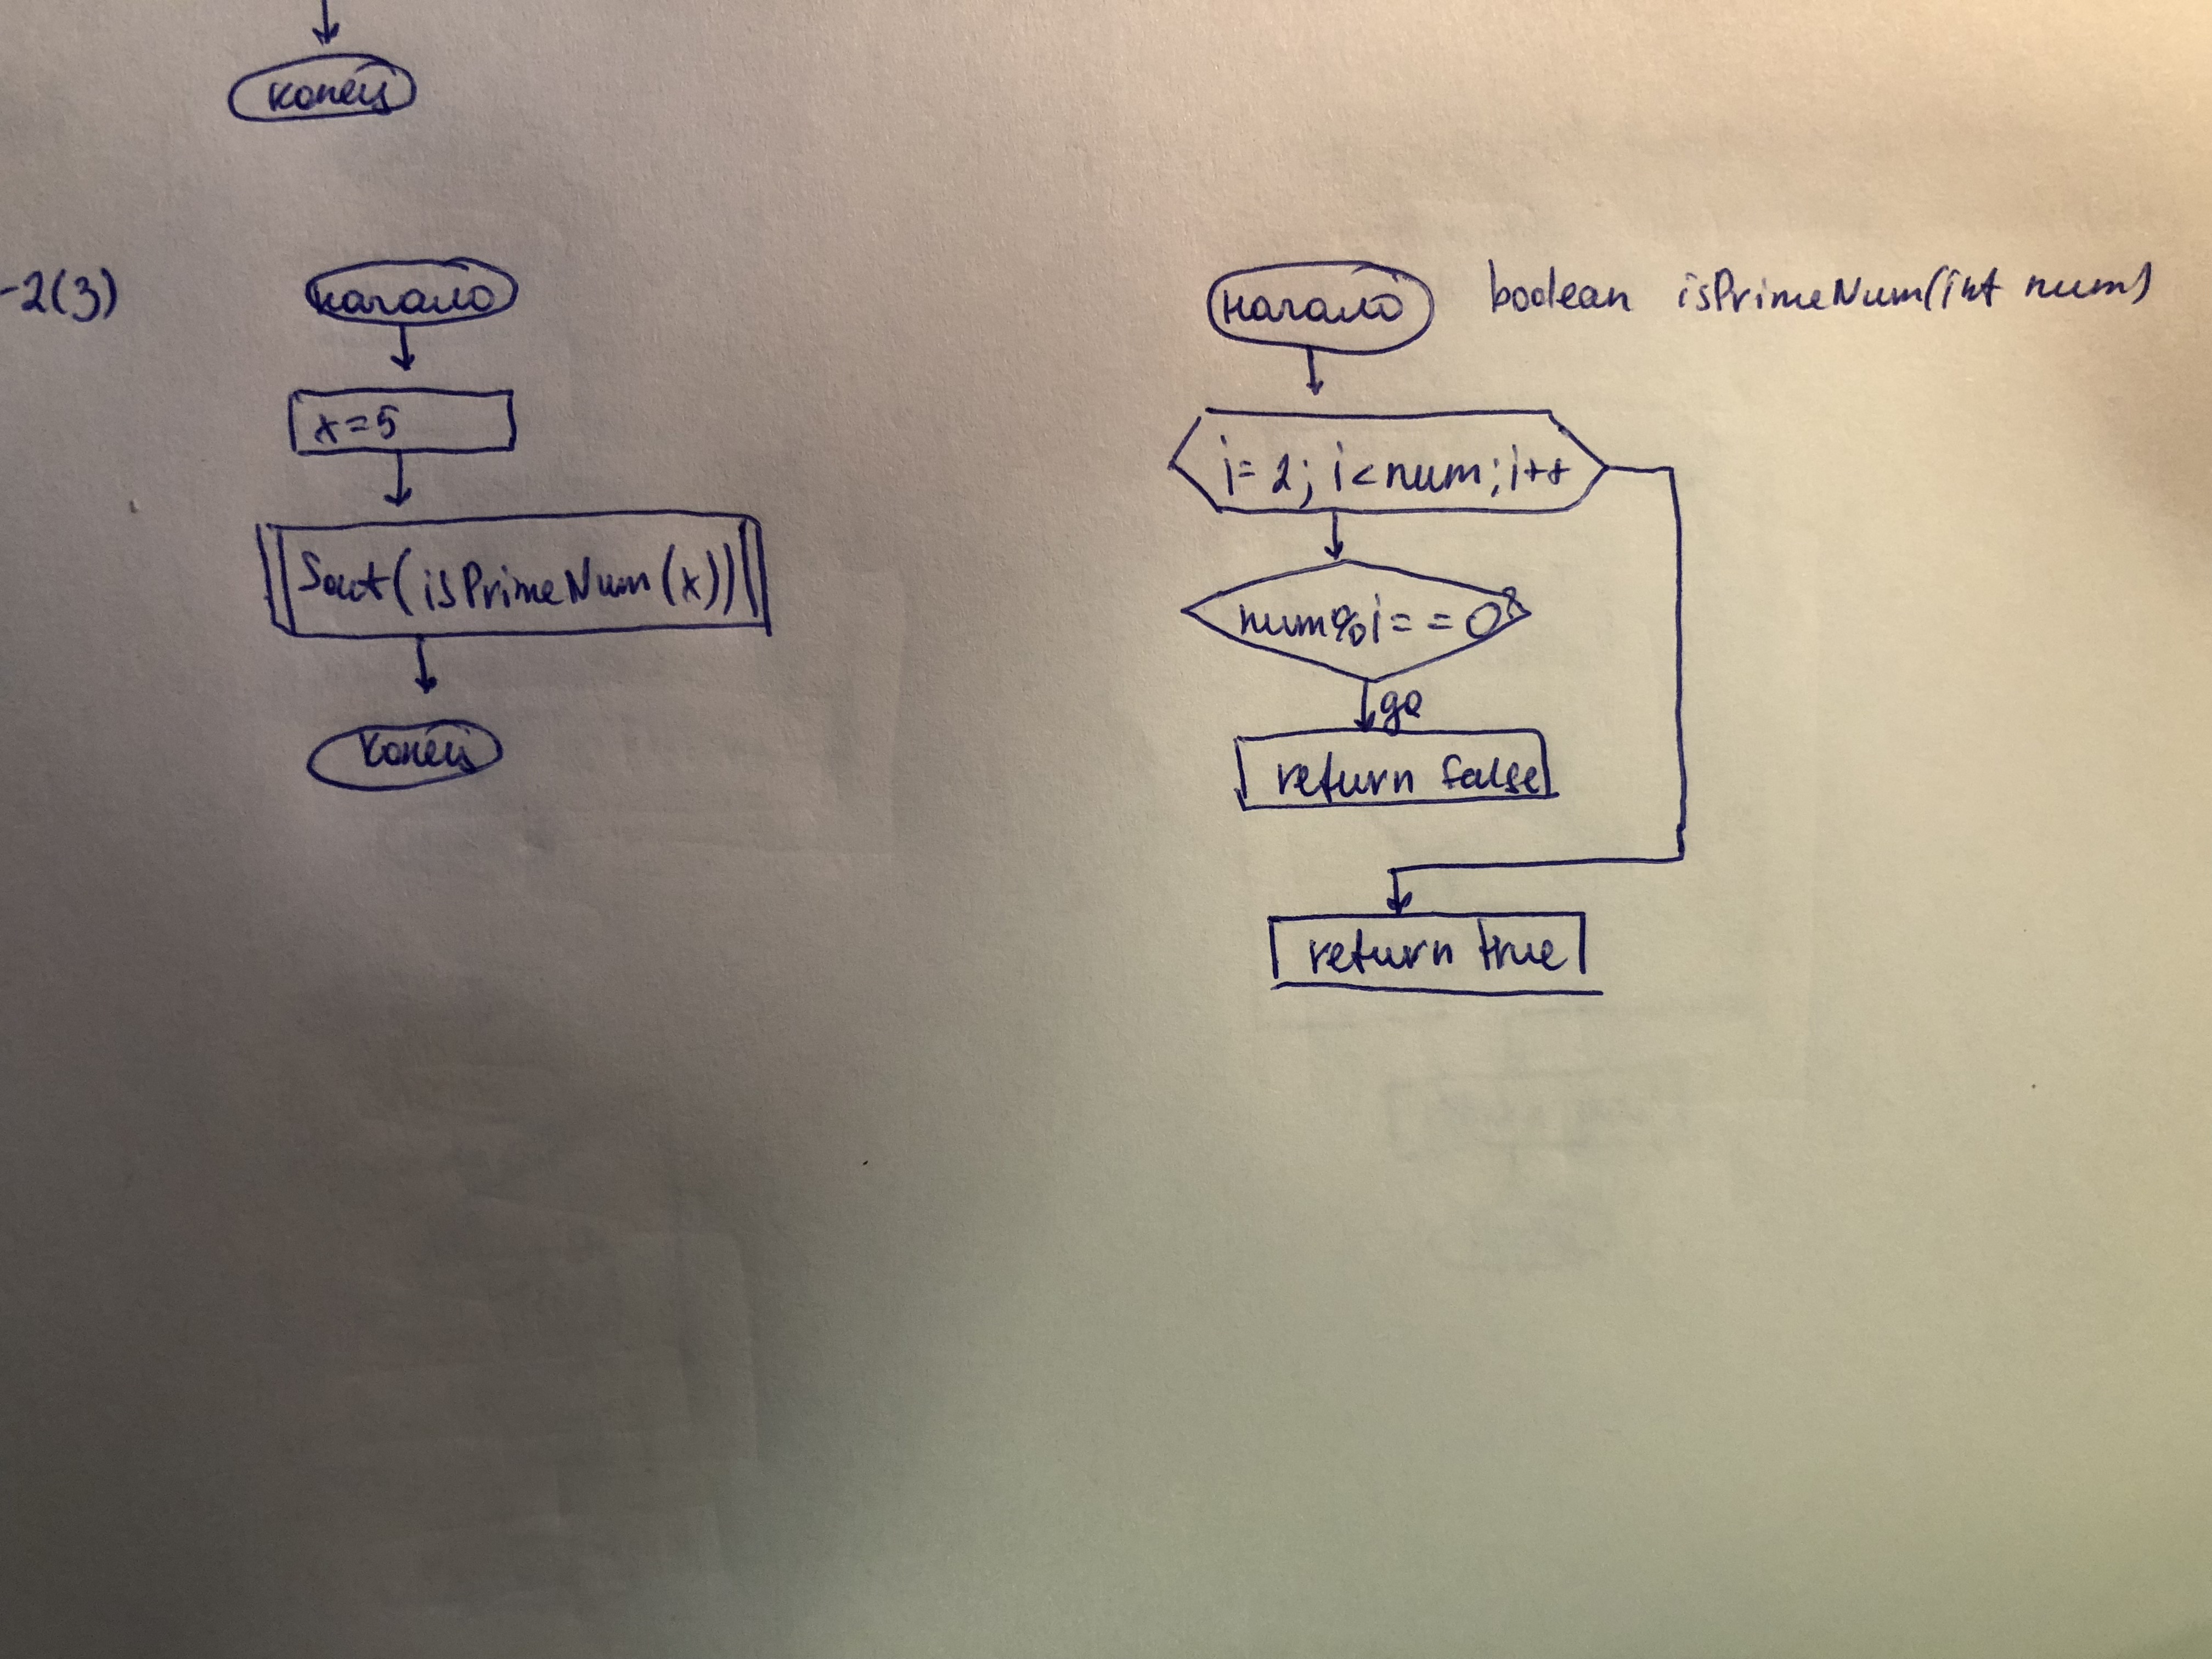 конец
-2(3)
начало
x=5
Sout(isPrimeNum(x))
конец
начало
boolean isPrimeNum(int num)
i=2; i<num; i++
num%i==0?
да
return false
return true